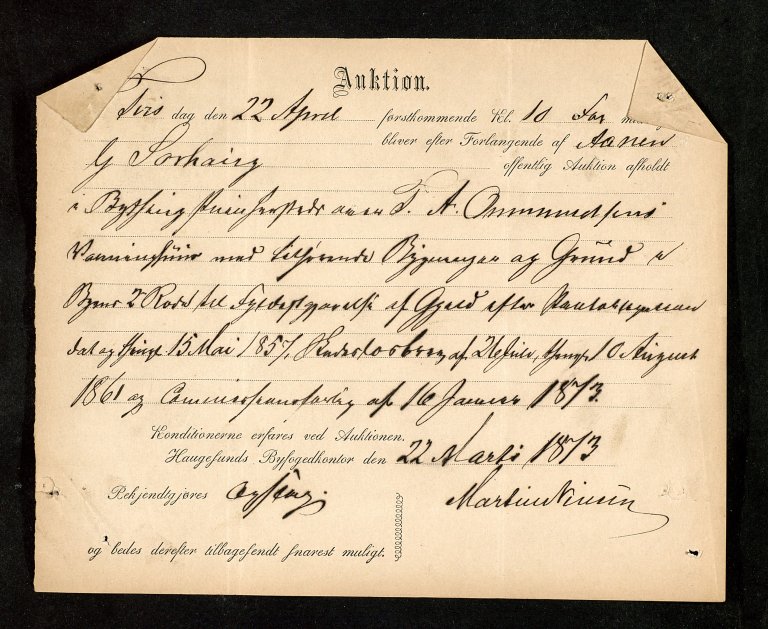 Auktion.
Tirsdag den 22 April førstkommende Kl. 10 For
bliver efter Forlangende af Aanen
G Sørhaug offentlig Auktion afholdt
i Bything over T. A. Ommundsens
Vaaningshuus med tilhørende Bygninger og Grund i
Byens 2 Rode til Fyldestgjørelse af Gjæld efter Pantobligation
dat og thingl 15 Mai 1857, af 26 Juli, thingl 10 August
1861 og Commissionsforlig af 16 Januar 1873.
Konditionerne erfares ved Auktionen.
Haugesunds Byfogedkontor den 22 Marts 1873
Bekjendtgjøres Martin Nissen
og bedes derefter tilbagesendt snarest muligt.